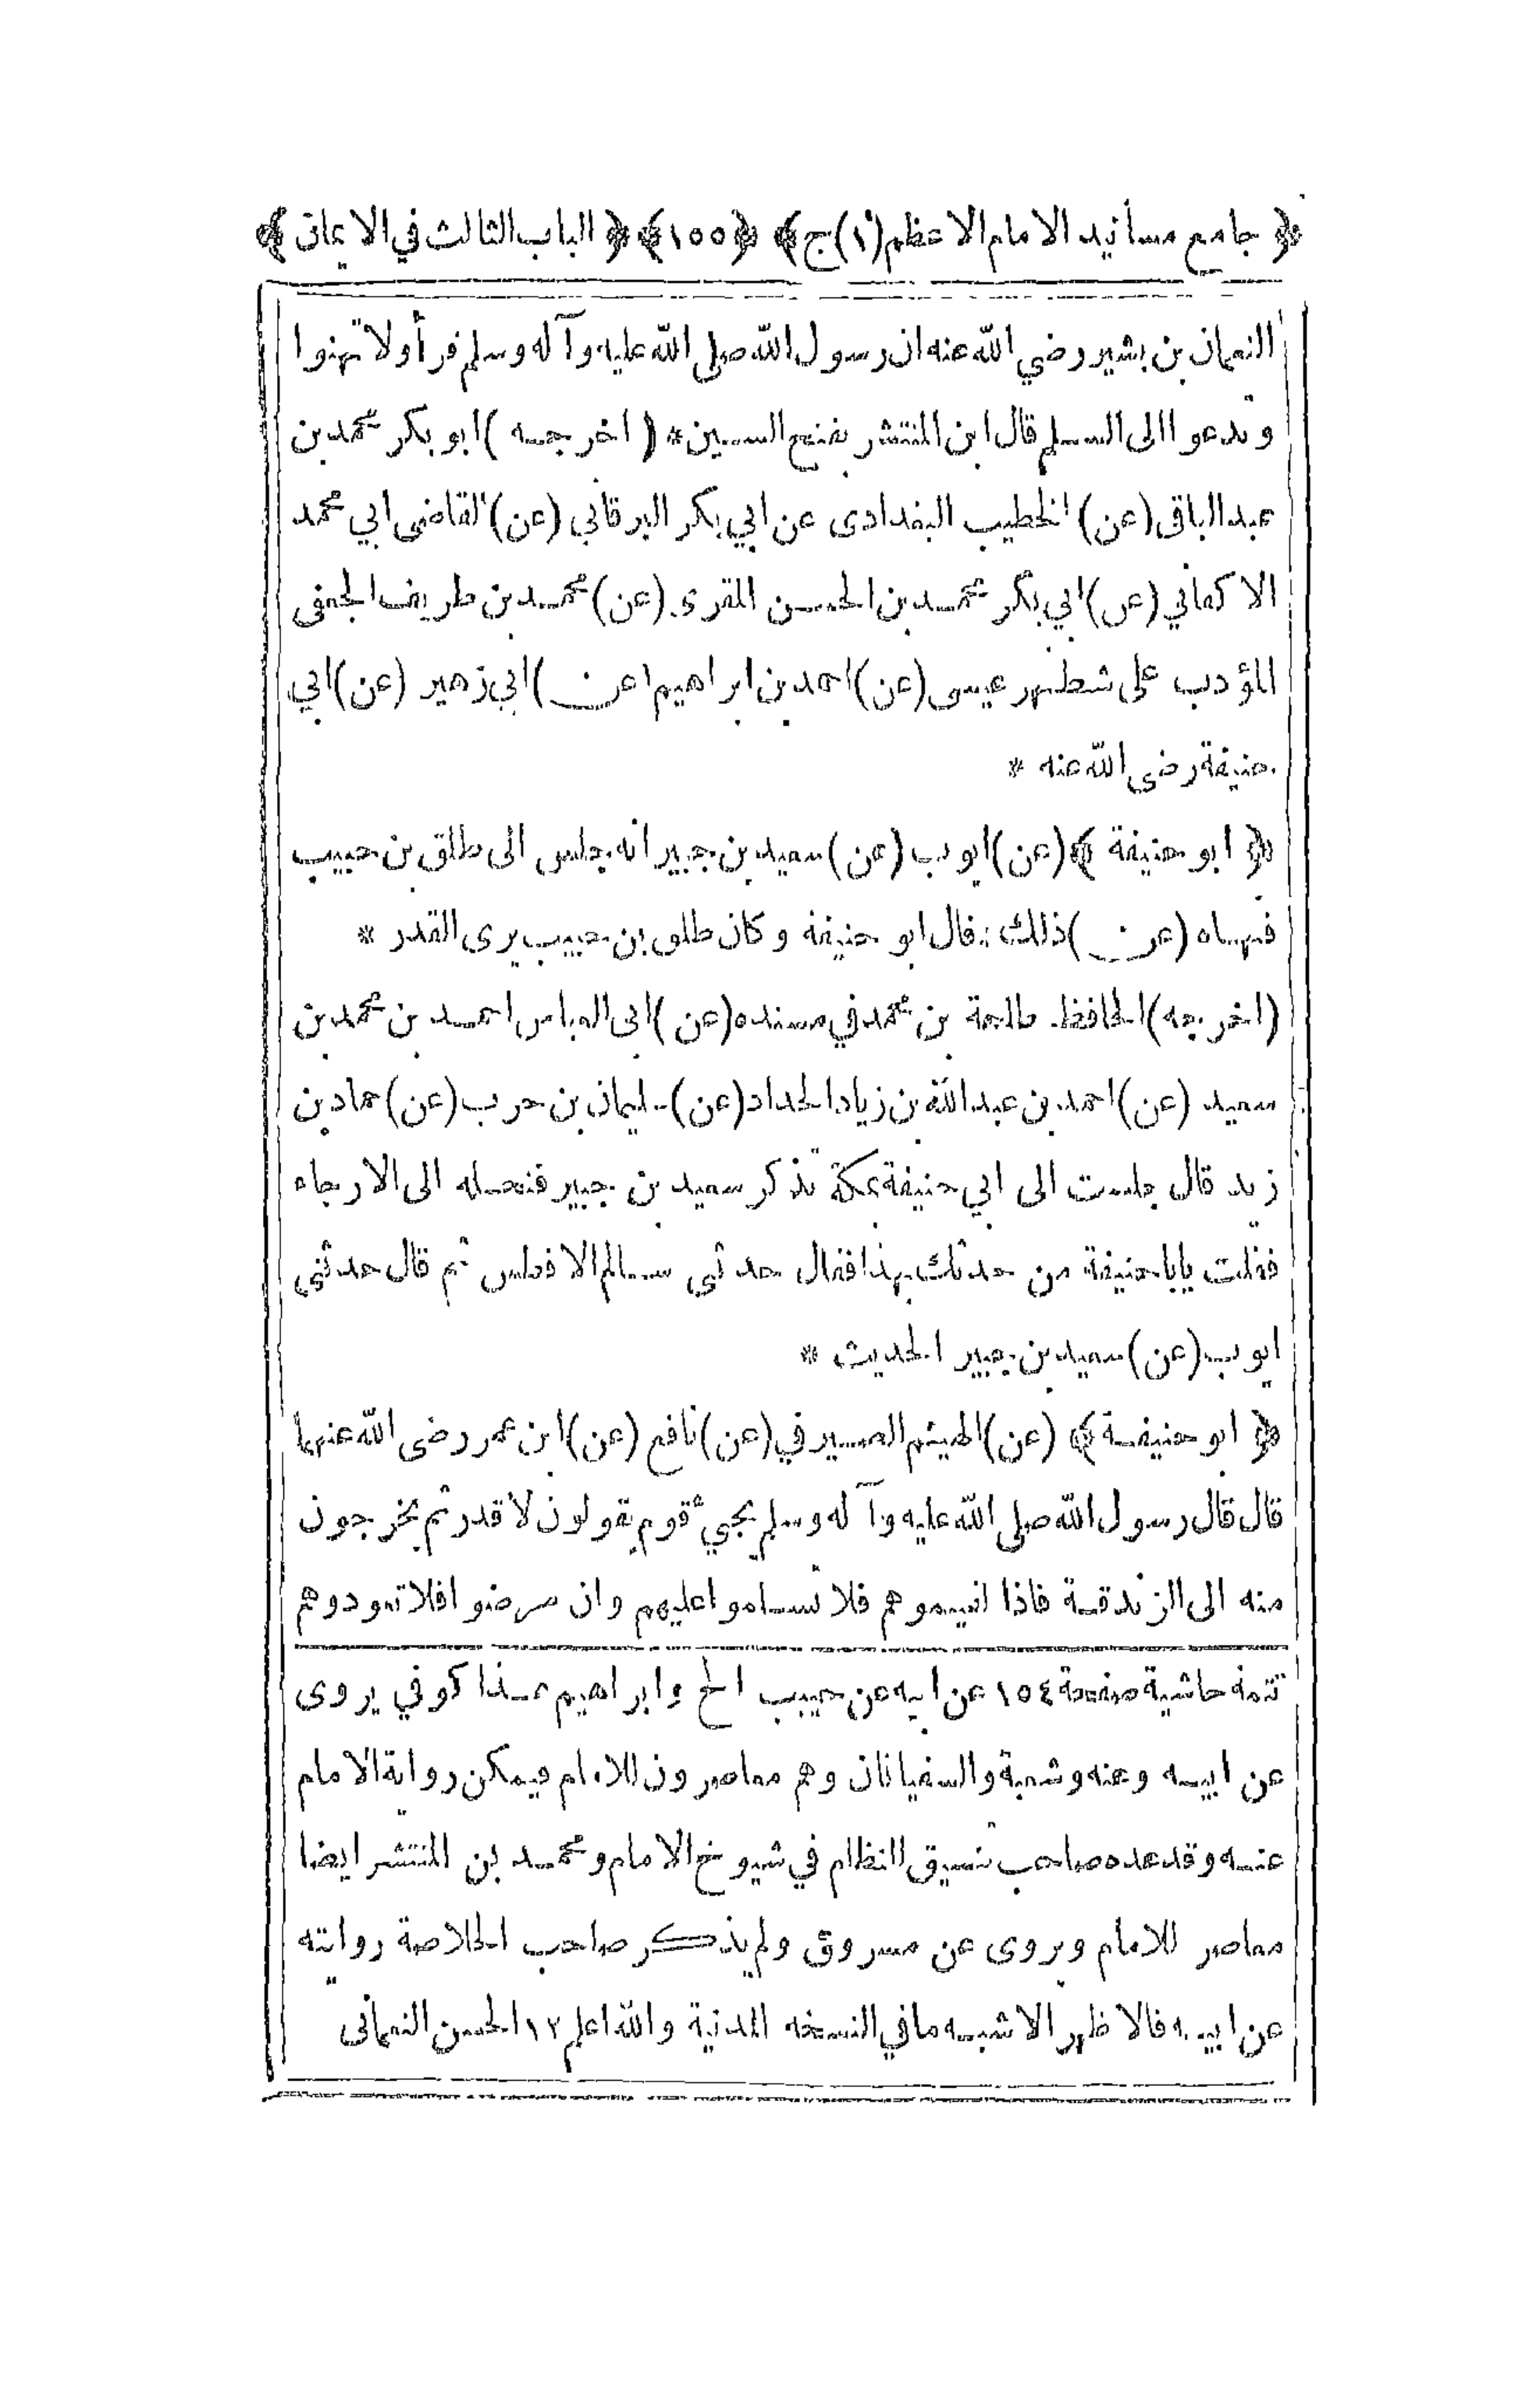 ﴿ جامع مسانيد الامام الاعظم (١) ج ﴾ ﴿ ١٥٥ ﴾ ﴿ الباب الثالث في الايمان ﴾
النعمان بن بشير رضي الله عنه ان رسول الله صلى الله عليه وآله وسلم قرأ ولا تهنوا
وتدعوا الى السلم قال ابن المنتشر بفتح السين * ( اخرجه ) ابو بكر محمد بن
عبد الباقى (عن) الخطيب البغدادى عن ابي بكر البرقاني (عن) القاضى ابي محمد
الاكفاني (عن) ابي بكر محمد بن الحسن المقرى (عن) محمد بن طريف الجعفى
المؤدب على شط نهر عيسى (عن) احمد بن ابراهيم (عن) ابي زهير (عن) ابي
حنيفة رضى الله عنه *
﴿ ابو حنيفة ﴾ (عن) ايوب (عن) سعيد بن جبير انه جلس الى طلق بن حبيب
فنهاه (عن) ذلك : قال ابو حنيفة وكان طلق بن حبيب يرى القدر *
(اخرجه) الحافظ طلحة بن محمد في مسنده (عن) ابى العباس احمد بن محمد بن
سعيد (عن) احمد بن عبد الله بن زياد الحداد (عن) سليمان بن حرب (عن) حماد بن
زيد قال جلست الى ابي حنيفة بمكة تذكر سعيد بن جبير فنحله الى الارجاء
فقلت يابا حنيفة من حدثك بهذا فقال حدثنى سالم الافطس ثم قال حدثني
ايوب (عن) سعيد بن جبير الحديث *
﴿ ابو حنيفة ﴾ (عن) الهيثم الصيرفي (عن) نافع (عن) ابن عمر رضى الله عنهما
قال قال رسول الله صلى الله عليه وآله وسلم يجيء قوم يقولون لا قدر ثم يخرجون
منه الى الزندقة فاذا لقيتموهم فلا تسلموا عليهم وان مرضوا فلا تعودوهم
تتمه حاشية صفحة ١٥٤ عن ابيه عن حبيب الخ وابراهيم هذا كوفي يروى
عن ابيه وعنه وشعبة والسفيانان وهم معاصرون للامام فيمكن رواية الامام
عنه وقد عده صاحب تنسيق النظام في شيوخ الامام ومحمد بن المنتشر ايضا
معاصر للامام ويروى عن مسروق ولم يذكر صاحب الخلاصة روايته
عن ابيه فالاظهر الاشبه ما في النسخه المدنية والله اعلم ١٢ الحسن النعمانى